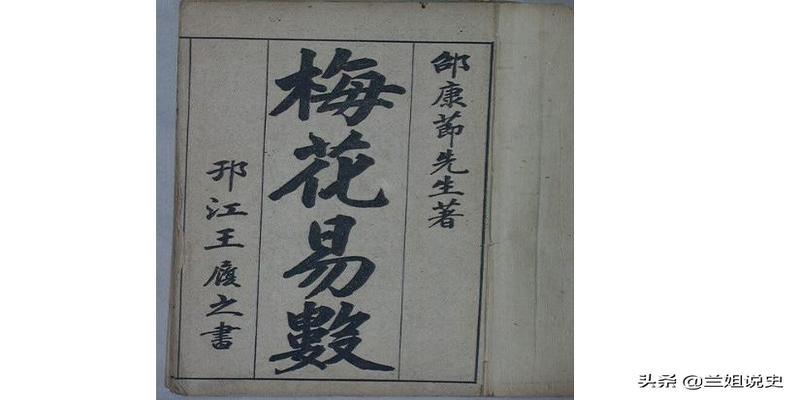 邵康節先生著
梅花易數
邗江王履之書
头条 @兰姐说史